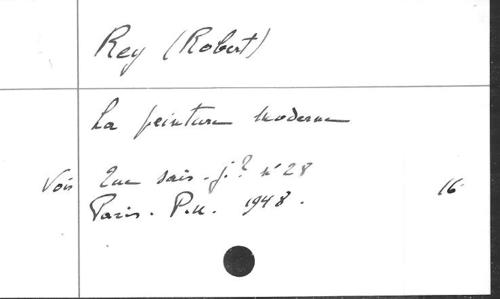 Rey (Robert)
La peinture moderne
Voir Que sais-je? n° 28
Paris. P.U. 1948. 16